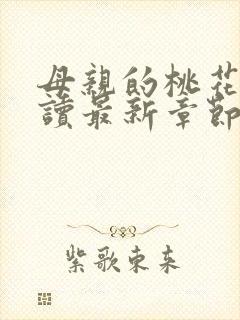 母親的桃花
讀最新章節
紫歌東来